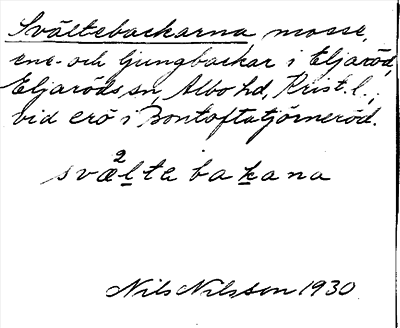 Svältebackarna, mosse,
ene- och ljungbackar i Eljaröd,
Eljaröds sn, Albo hd, Krist. l.,
vid erö i Bontoftatjörneröd.
svæ²lte bakana
Nils Nilsson 1930